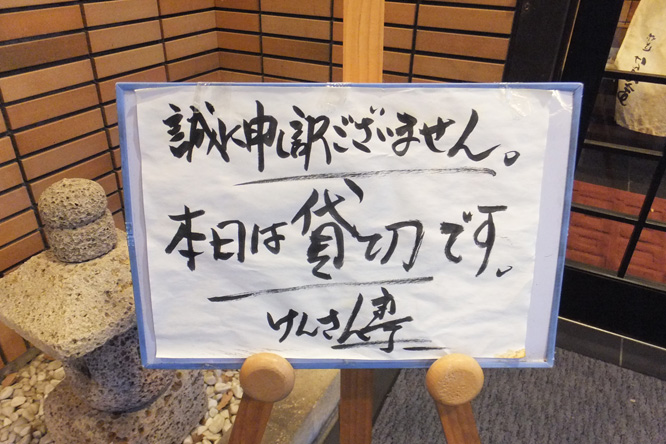 誠に申し訳ございません。
本日は貸切です。
けんさん